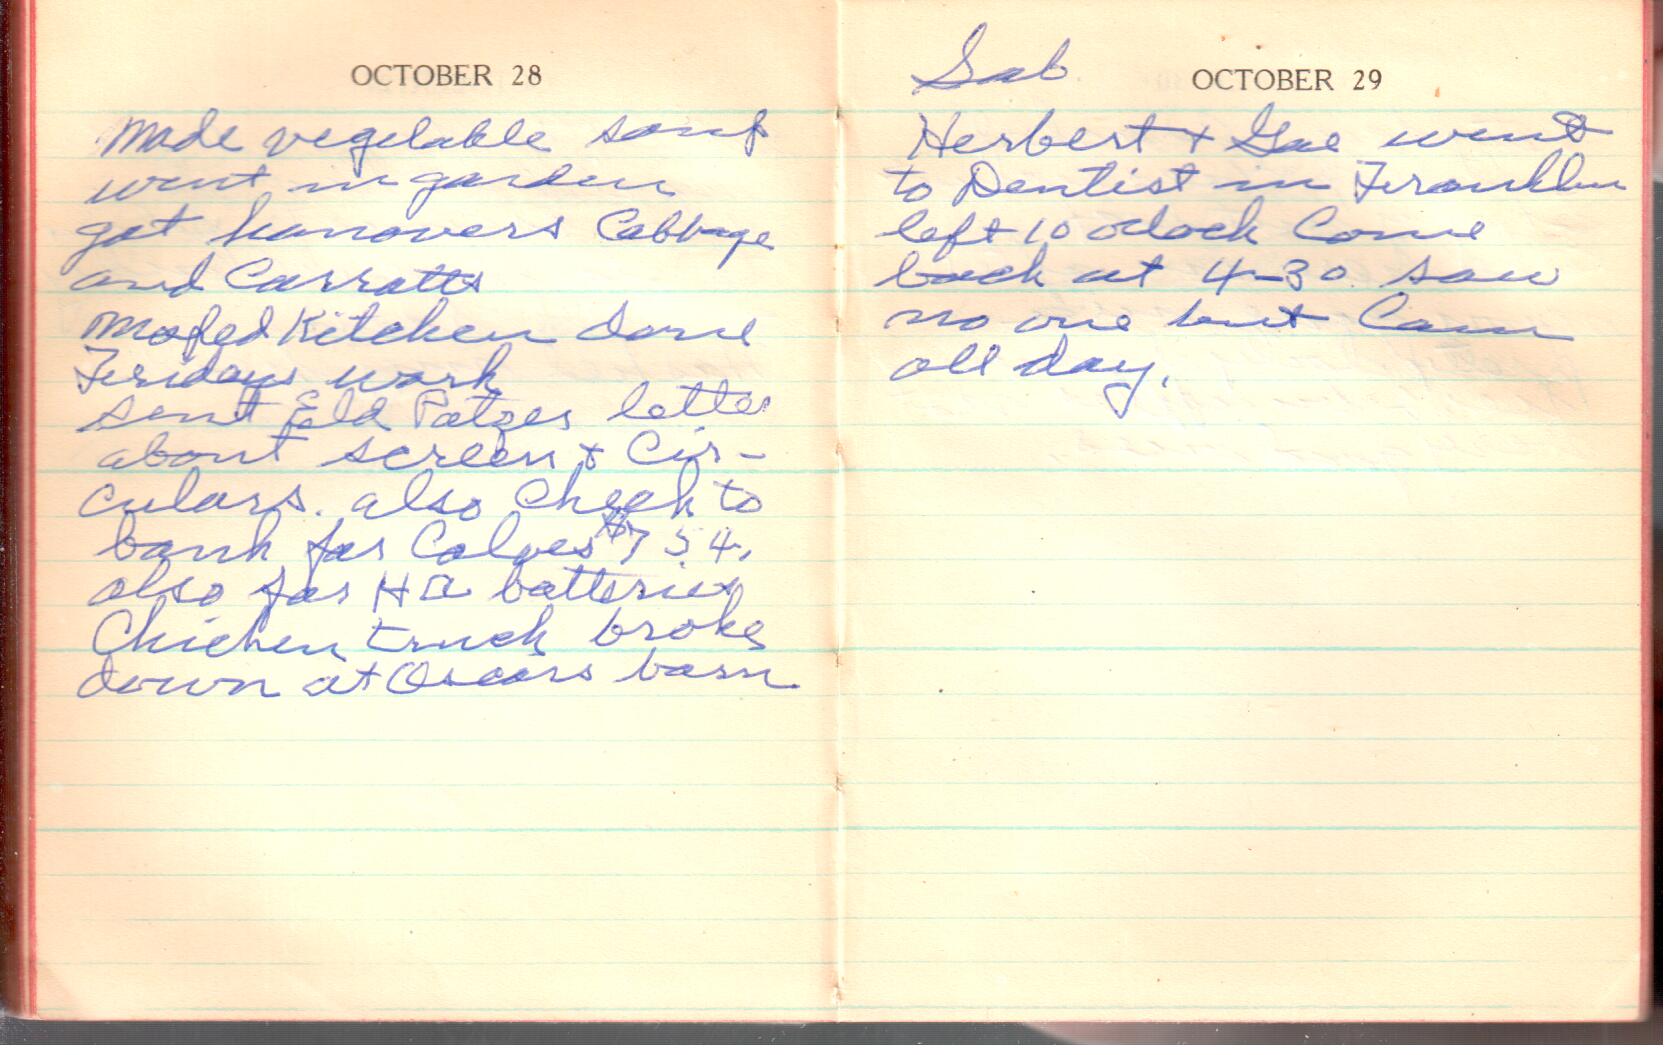 OCTOBER 28
Made vegetable soup
went in garden
got hanovers Cabbage
and Carratts
Moped Kitchen done
Fridays work
sent Eld Patzes letter
about screen + Cir-
culars. also Check to
bank for Calves $754.
also for HA batteries
Chicken truck broke
down at Oscars barn
Sab
OCTOBER 29
Herbert + Gae went
to Dentist in Franklin
left 10 oclock Come
back at 4-30. saw
no one but Cam
all day.